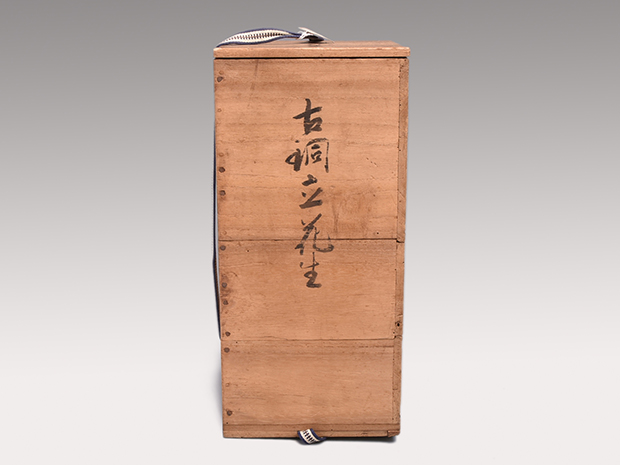 古銅立花生